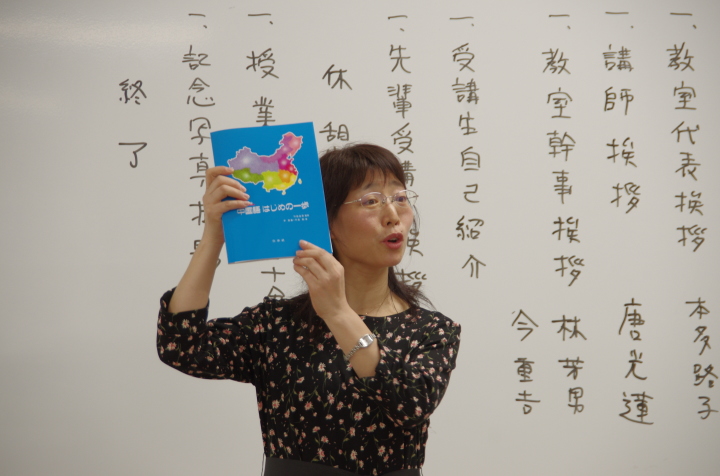 一、教室代表挨拶 本多路子
一、講師挨拶 唐光蓮
一、教室幹事挨拶 林芳男
今重吉
一、受講生自己紹介
一、先輩受講
挨拶
休
一、授業
一、記念写真
終了
中国語 はじめの一歩